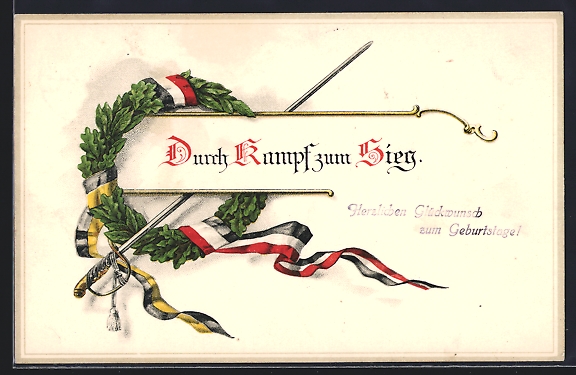 Durch Kampf zum Sieg.
Herzlichen Glückwunsch
zum Geburtstage!